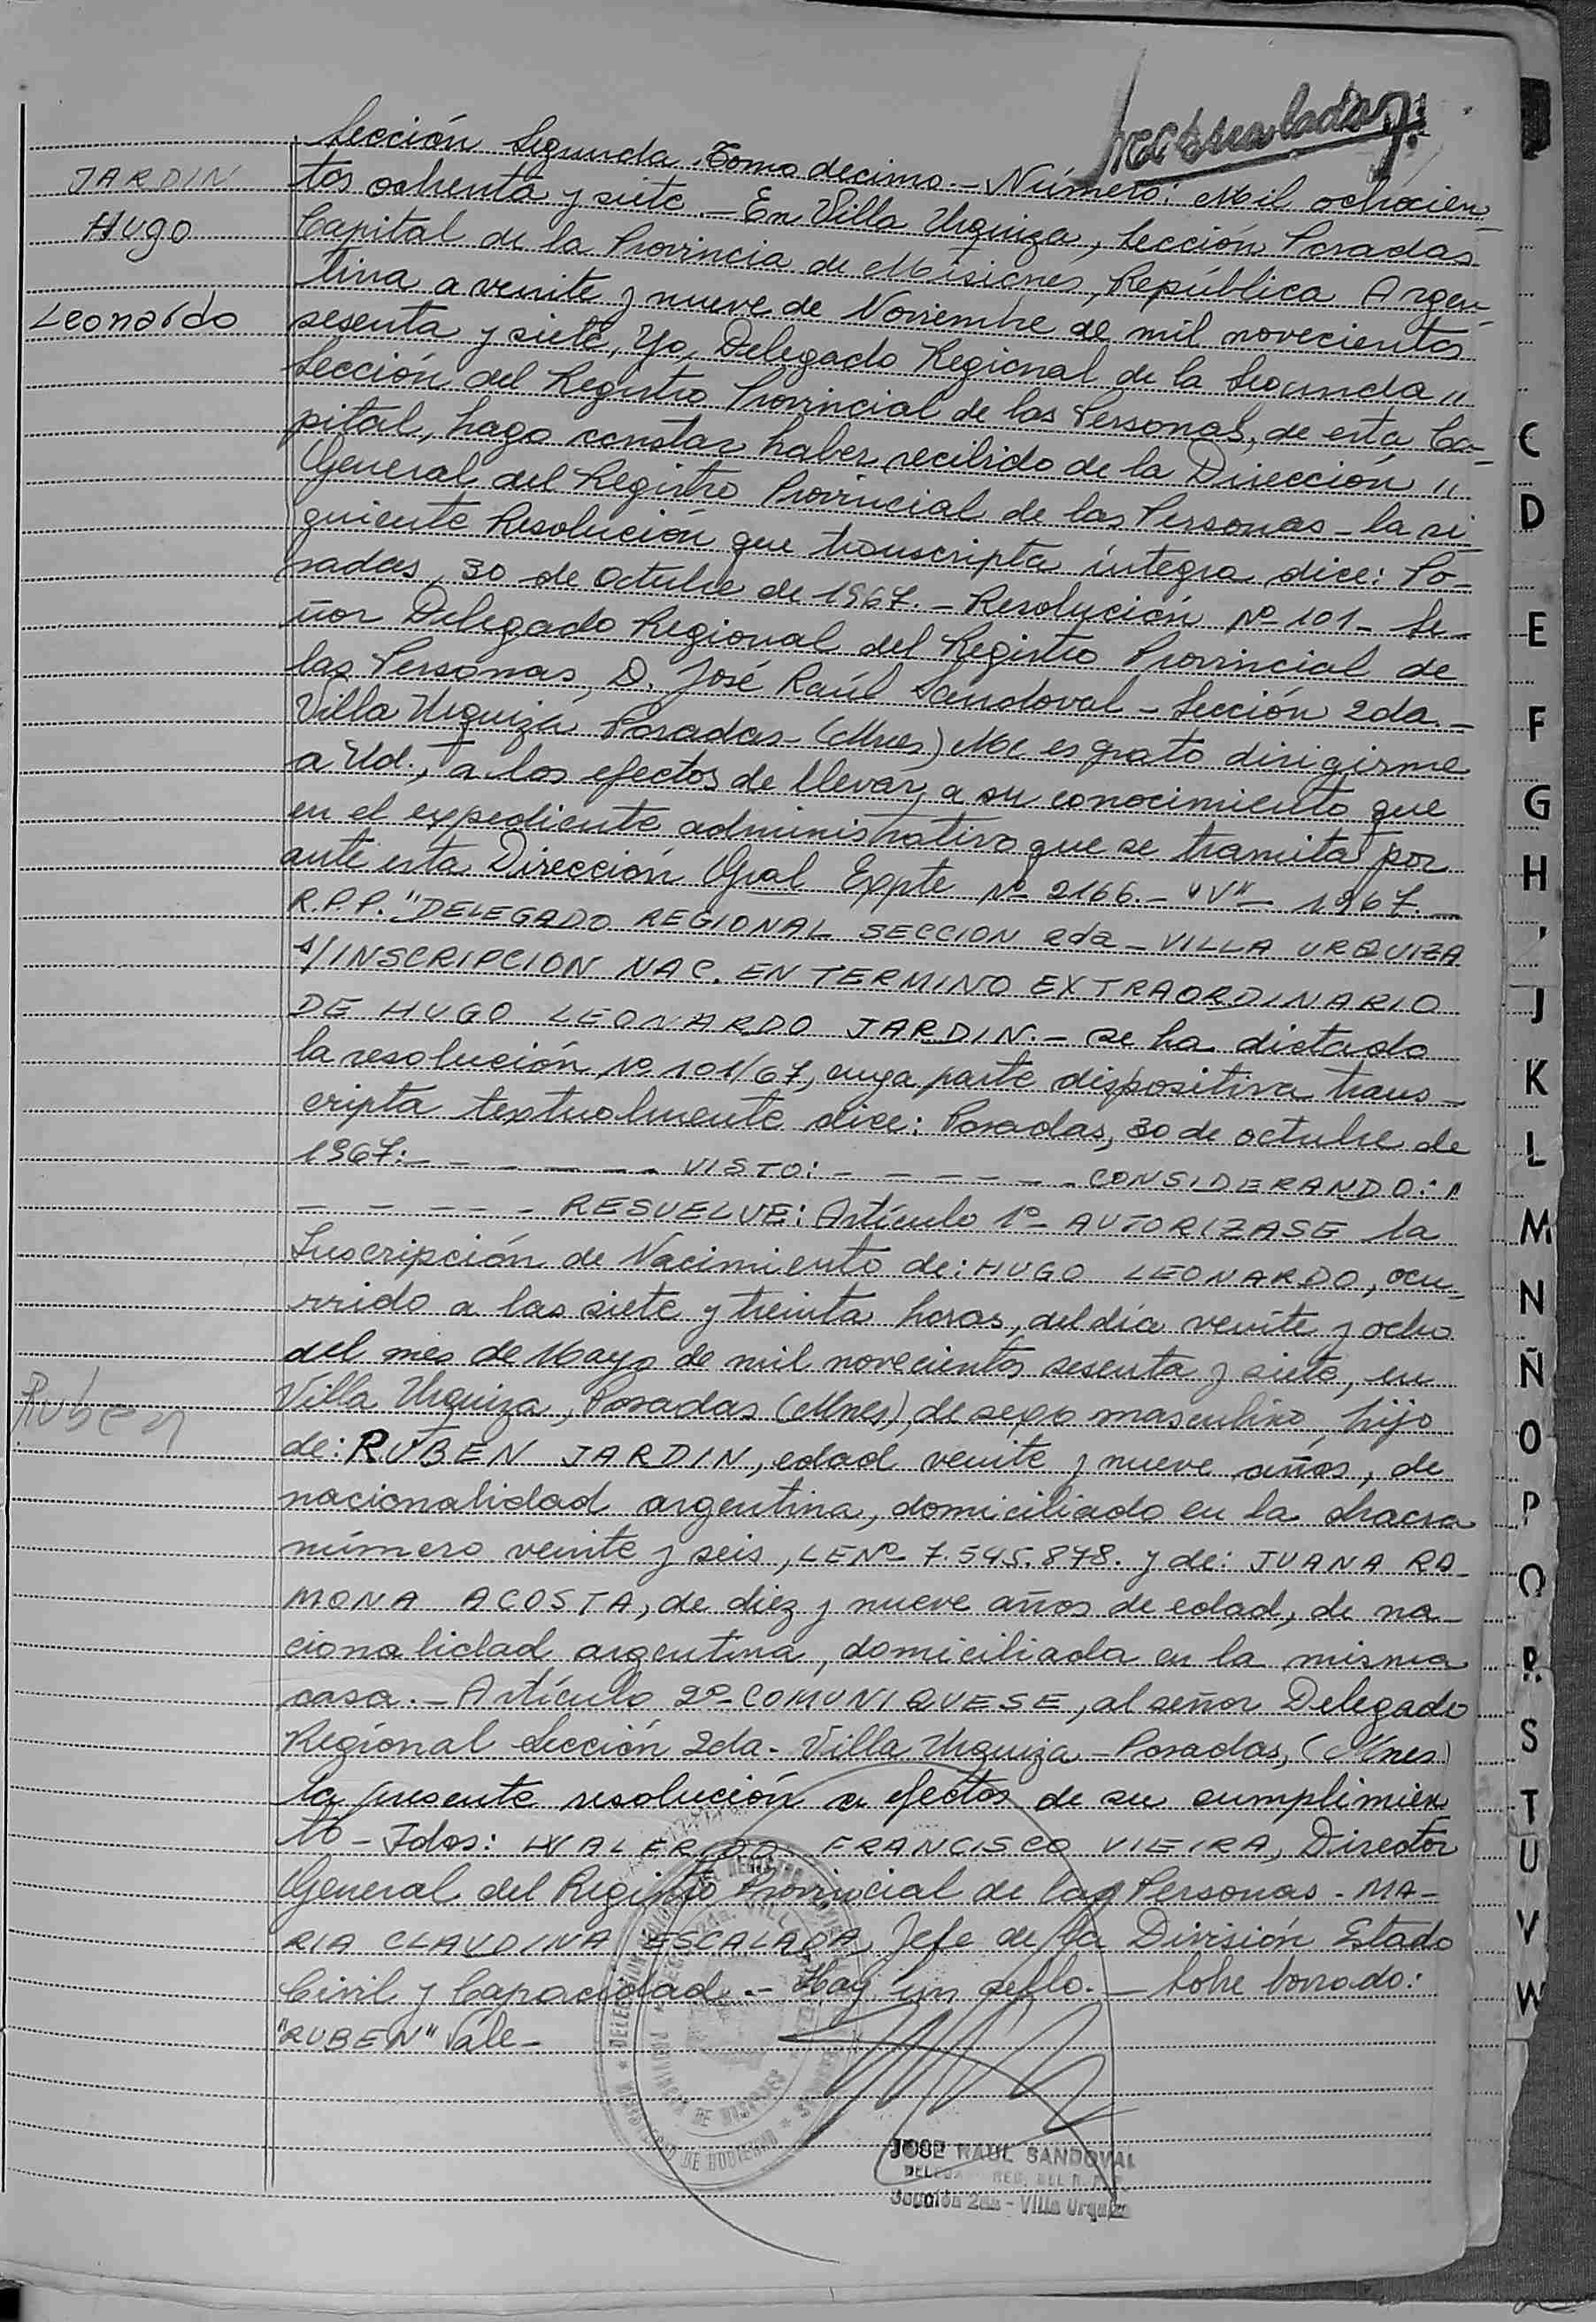 recaratulado
JARDIN
Hugo
Leonardo
Ruben
Sección Segunda Tomo decimo.- Número: Mil ochocien-
tos ochenta y siete.- En Villa Urquiza, Sección Posadas
Capital de la Provincia de Misiones, República Argen-
tina a veinte y nueve de Noviembre de mil novecientos
sesenta y siete, Yo, Delegado Regional de la Segunda "
Sección del Registro Provincial de las Personas, de esta Ca-
pital, hago constar haber recibido de la Dirección "
General del Registro Provincial de las Personas - la si-
guiente Resolución que transcripta íntegra dice: Po-
sadas, 30 de Octubre de 1967.- Resolución Nº 101- Se-
ñor Delegado Regional del Registro Provincial de
las Personas, D. José Raúl Sandoval - Sección 2da.-
Villa Urquiza Posadas- (Mnes) Me es grato dirigirme
a Ud., a los efectos de llevar a su conocimiento que
en el expediente administrativo que se tramita por
ante esta Dirección Gral Expte Nº 2166.- "V"- 1967.-
R.P.P. "DELEGADO REGIONAL SECCION 2da - VILLA URQUIZA
s/INSCRIPCION NAC. EN TERMINO EXTRAORDINARIO
DE HUGO LEONARDO JARDIN.- Se ha dictado
la resolución Nº 101/67, cuya parte dispositiva trans-
cripta textualmente dice: Posadas, 30 de octubre de
1967:- - - - - - - VISTO: - - - - - - CONSIDERANDO: "
- - - - - RESUELVE: Artículo 1º- AUTORIZASE la
Inscripción de Nacimiento de: HUGO LEONARDO, ocu-
rrido a las siete y treinta horas, del día veinte y ocho
del mes de Mayo de mil novecientos sesenta y siete, en
Villa Urquiza, Posadas (Mnes), de sexo masculino, hijo
de: RUBEN JARDIN, edad veinte y nueve años, de
nacionalidad argentina, domiciliado en la chacra
número veinte y seis, LE Nº 7.545.878. y de: JUANA RA-
MONA ACOSTA, de diez y nueve años de edad, de na-
cionalidad argentina, domiciliada en la misma
casa.- Artículo 2º- COMUNIQUESE, al señor Delegado
Regional Sección 2da- Villa Urquiza - Posadas, (Mnes)
la presente resolución a efectos de su cumplimien
to - Fdos: WALERDO FRANCISCO VIEIRA, Director
General del Registro Provincial de las Personas - MA-
RIA CLAUDINA ESCALADA, Jefe de la División Estado
Civil y Capacidad.- Hay un sello.- Sobre borrado:
"RUBEN" Vale-
PROVINCIA DE MISIONES
MINISTERIO DE GOBIERNO
JOSE RAUL SANDOVAL
DELEGADO REG. DEL R. P. P.
Sección 2da - Villa Urquiza
C
D
E
F
G
H
I
J
K
L
M
N
Ñ
O
P
Q
R
S
T
U
V
W